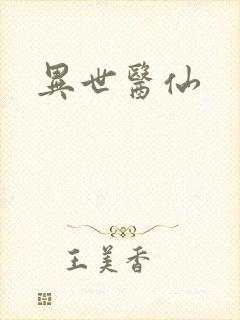 異世醫仙
王美香